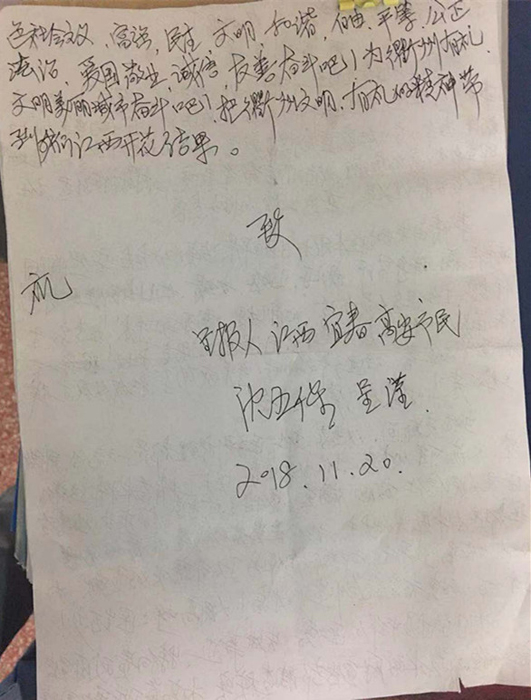 色社会主义、富强、民主、文明、和谐、自由、平等、公正
法治、爱国、敬业、诚信、友善奋斗吧！为衢州有礼
文明美丽城市奋斗吧！把衢州文明、有礼的精神带
到我们江西开花结果。
致
礼
呈报人江西宜春高安市民
沈五保 呈谨
2018.11.20.